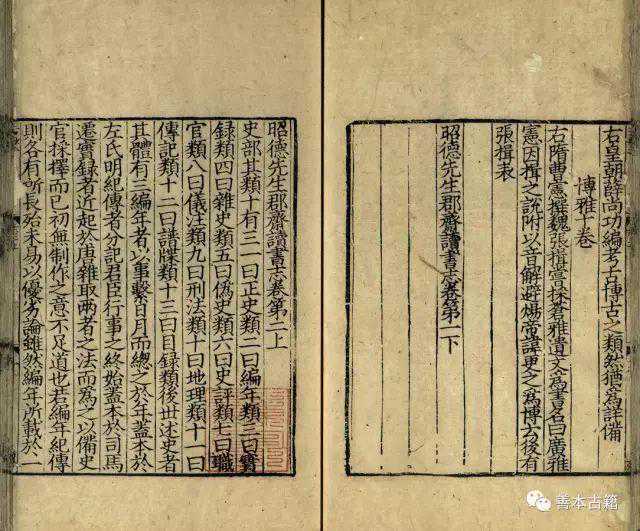 右皇朝薛尚功編考古博古之類然猶為詳備
博雅十卷
右隋曹憲撰魏張揖嘗採蒼雅遺文為書名曰廣雅
憲因揖之說附以音解避煬帝諱更之為博云後有
張揖表
昭德先生郡齋讀書志卷第一下
昭德先生郡齋讀書志卷第二上
史部其類十有三一曰正史類二曰編年類三曰實
錄類四曰雜史類五曰偽史類六曰史評類七曰職
官類八曰儀注類九曰刑法類十曰地理類十一曰
傳記類十二曰譜牒類十三曰目録類後世述史者
其體有三編年者以事繫日月而總之於年蓋本於
左氏明紀傳者分記君臣行事之終始蓋本於司馬
遷實録者近起於唐雜取兩者之法而為之以備史
官採擇而已初無制作之意不足道也若編年紀傳
則各有所長殆未易以優劣論雖然編年所載於一
善本古籍